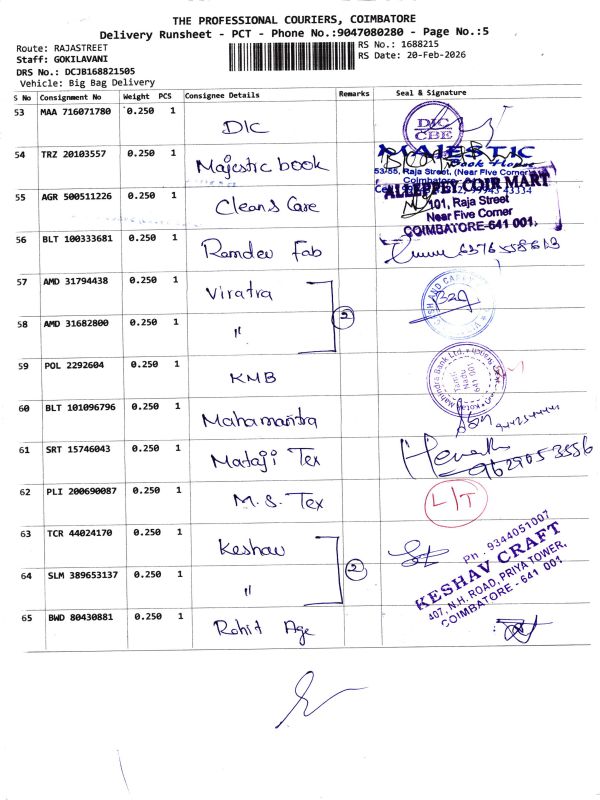 THE PROFESSIONAL COURIERS, COIMBATORE
Delivery Runsheet - PCT - Phone No.:9047080280 - Page No.:5
Route: RAJASTREET
RS No.: 1688215
Staff: GOKILAVANI
RS Date: 20-Feb-2026
DRS No.: DCJB168821505
Vehicle: Big Bag Delivery
S No Consignment No Weight PCS Consignee Details Remarks Seal & Signature
53 MAA 716071780 0.250 1 DIC
DIC
CBE
54 TRZ 20103557 0.250 1 Majestic book
MAJESTIC
Book House
53/55, Raja Street, (Near Five Corner)
Coimbatore
55 AGR 500511226 0.250 1 Clean & Care
ALLEPPEY COIR MART
101, Raja Street
Near Five Corner
COIMBATORE-641 001.
56 BLT 100333681 0.250 1 Ramdev Fab
57 AMD 31794438 0.250 1 Viratra
58 AMD 31682800 0.250 1 "
2
59 POL 2292604 0.250 1 KMB
Mahindra Bank Ltd.
60 BLT 101096796 0.250 1 Mahamantra
61 SRT 15746043 0.250 1 Mataji Tex
62 PLI 200690087 0.250 1 M.S. Tex
L/T
63 TCR 44024170 0.250 1 Keshav
64 SLM 389653137 0.250 1 "
2
Ph : 9344051007
KESHAV CRAFT
407, N.H. ROAD, PRIYA TOWER,
COIMBATORE - 641 001
65 BWD 80430881 0.250 1 Rohit Age